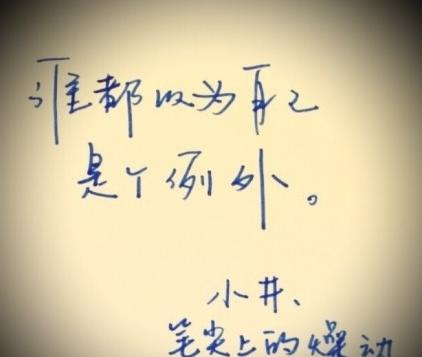 谁都以为自己
是个例外。
小井、
笔尖上的燥动